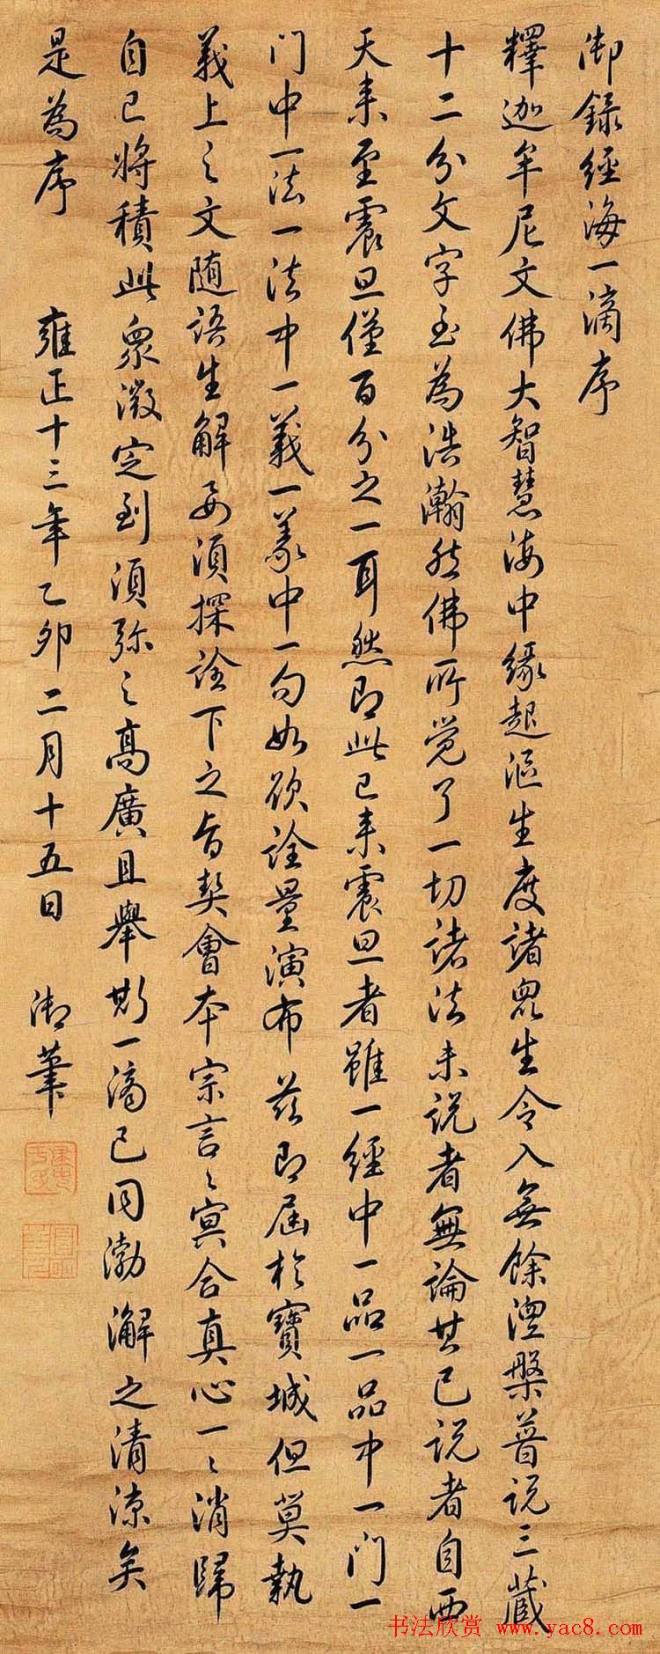 御錄經海一滴序
釋迦牟尼文佛大智慧海中緣起漚生度諸眾生令入無餘涅槃普說三藏
十二分文字至為浩瀚然佛所覺了一切諸法未說者無論其已說者自西
天來至震旦僅百分之一耳然即此已來震旦者雖一經中一品一品中一門一
门中一法一法中一義一義中一句如欲詮量演布茲即屆於寶城但莫執
義上之文随語生解要須探詮下之旨契會本宗言〻冥合真心一〻消歸
自己將積此眾微定到須弥之高廣且舉斯一滴已同渤澥之清涼矣
是為序
雍正十三年乙卯二月十五日
御筆
书法欣赏 www.yac8.com